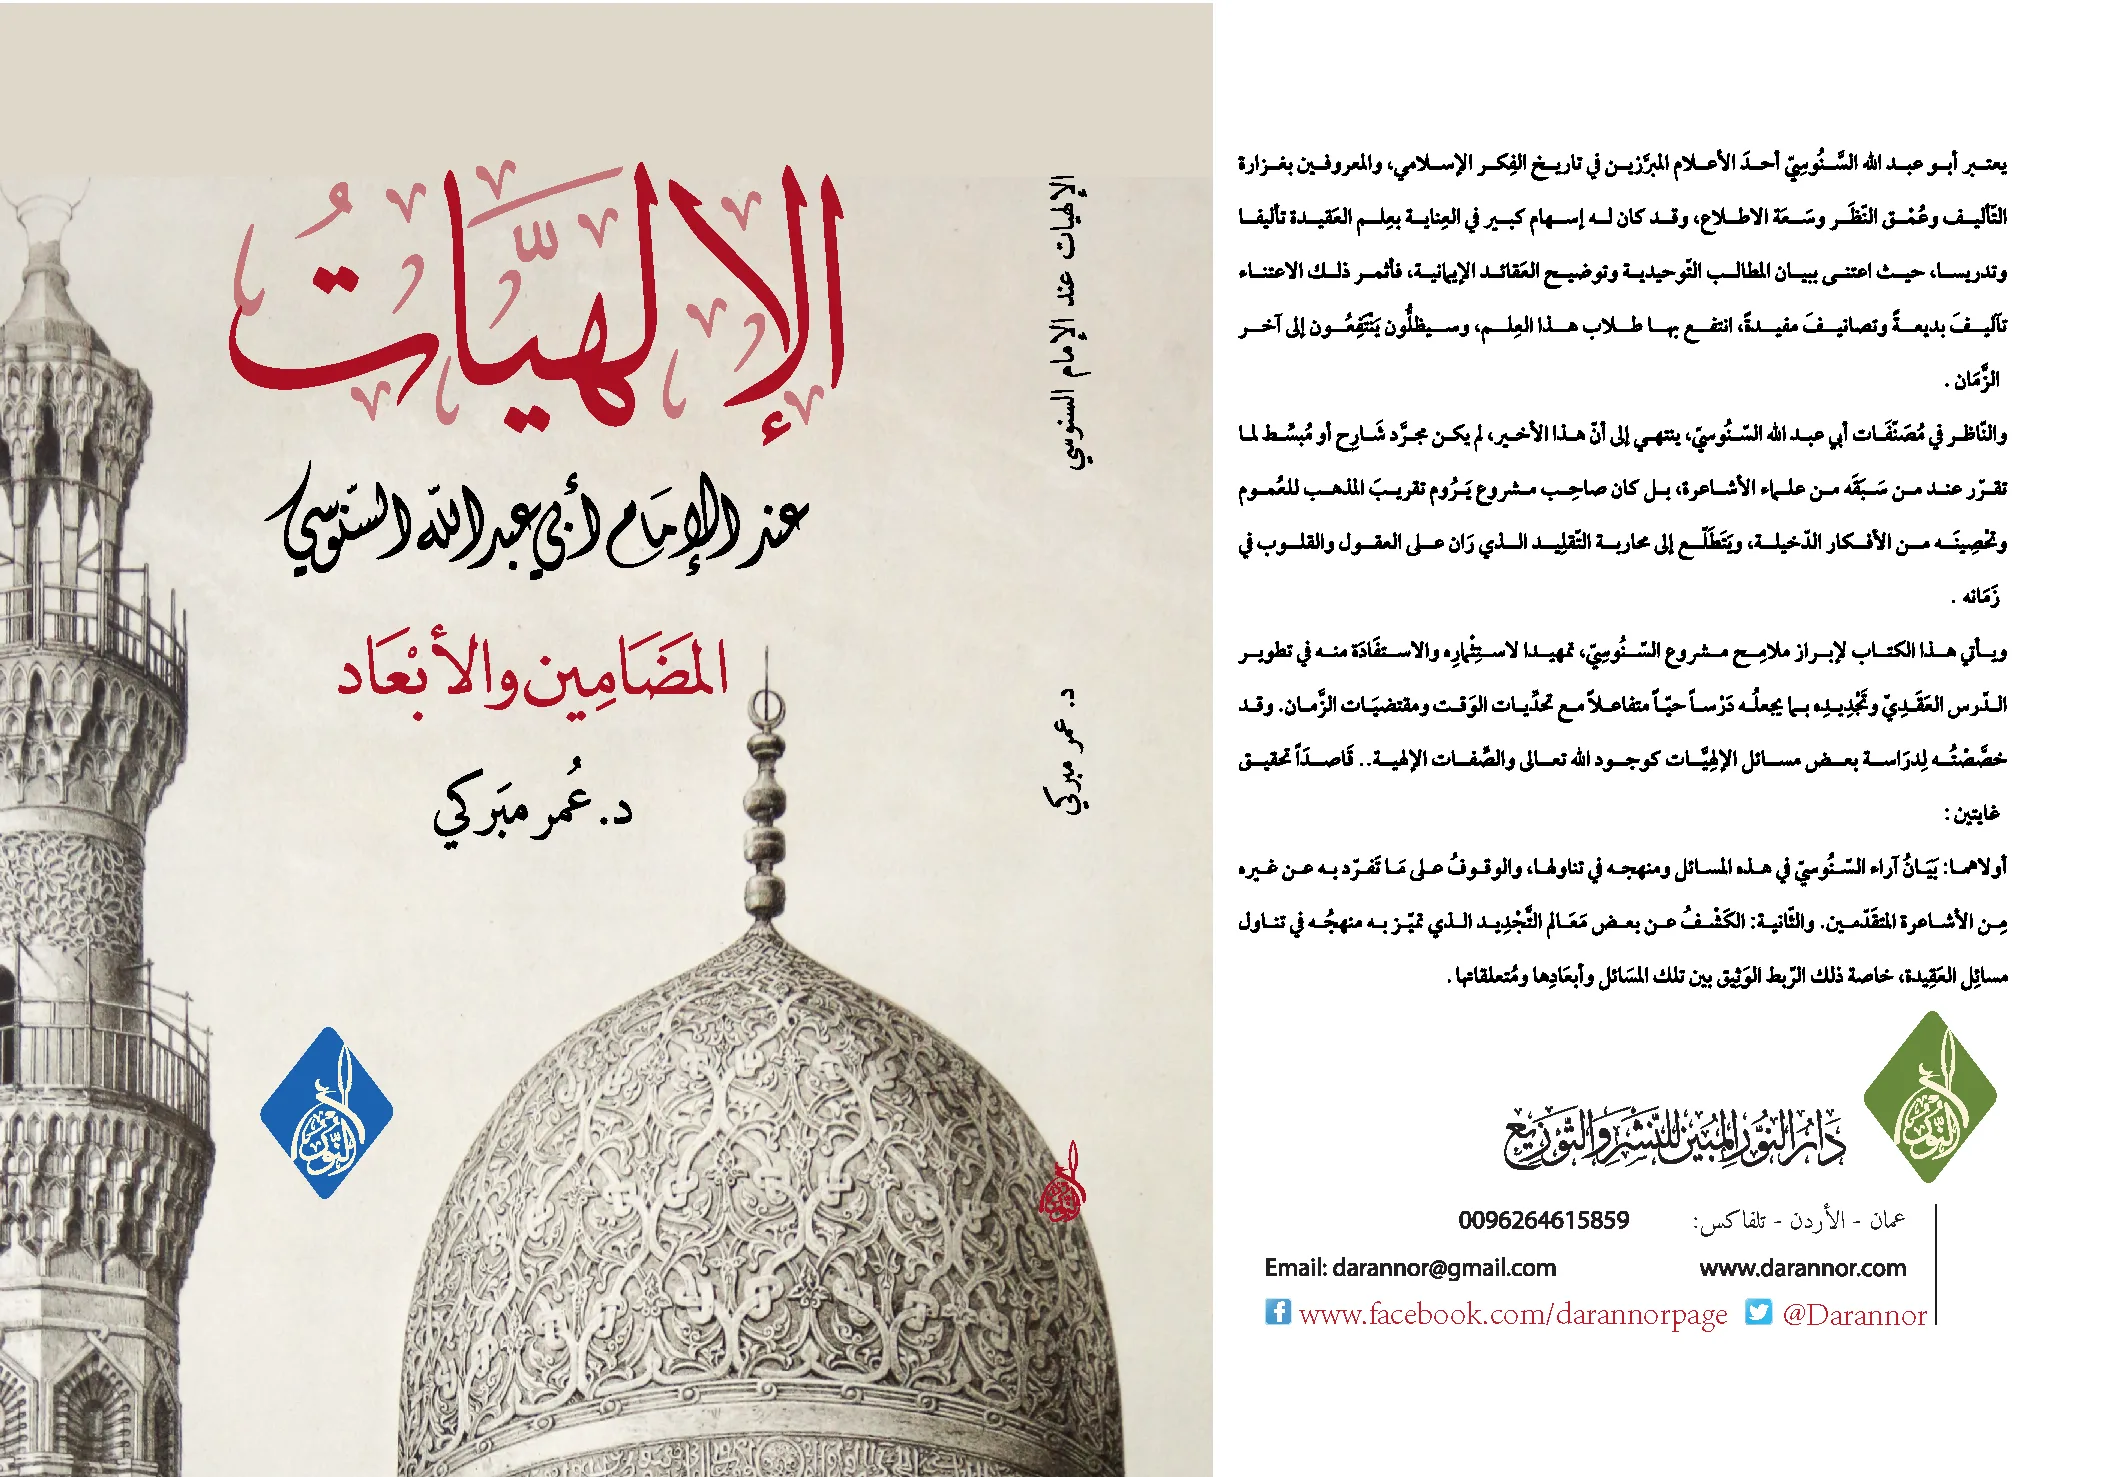 الإِلٰهِيَّاتُ
عند الإمَام أبي عبد اللّه السَّنُوسِي
المَضَامِين والأَبْعَاد
د. عُمر مبَركي
الإلهيات عند الإمام السنوسي
د. عمر مبركي
النُّور
يعتبر أبو عبد الله السَّنُوسِيّ أحدَ الأعلام المبرَّزين في تاريخ الفِكر الإسلامي، والمعروفين بغزارة
التّأليف وعُمْق النّظَر وسَعَة الاطلاع، وقد كان له إسهام كبير في العِناية بعِلم العَقيدة تأليفا
وتدريسا، حيث اعتنى ببيان المطالب التّوحيدية وتوضيح العَقائد الإيمانية، فأثمر ذلك الاعتناء
تآليفَ بديعةً وتصانيفَ مفيدةً، انتفع بها طلاب هذا العِلم، وسيظلُّون يَنْتَفِعُون إلى آخر
الزَّمَان .
والنّاظر في مُصَنّفَات أبي عبد الله السّنُوسيّ، ينتهي إلى أنّ هذا الأخير، لم يكن مجرَّد شَارِح أو مُبسِّط لما
تقرّر عند من سَبَقَه من علماء الأشاعرة، بل كان صاحِب مشروع يَرُوم تقريبَ المذهب للعُموم
وتحْصِينَه من الأفكار الدّخيلة، ويَتَطَلّع إلى محاربة التّقلِيد الذي رَان على العقول والقلوب في
زَمَانه .
ويأتي هذا الكتاب لإبراز ملامِح مشروع السّنُوسِيّ، تمهيدا لاستِثْمارِه والاستفَادَة منه في تطوير
الدّرس العَقَدِيّ وتَجْدِيدِه بما يجعلُه دَرْساً حيّاً متفاعلاً مع تحدِّيات الوَقت ومقتضيَات الزَّمان. وقد
خصَّصْتُه لِدرَاسة بعض مسائل الإلهِيَّات كوجود الله تعالى والصِّفات الإلهية.. قَاصداً تحقيق
غايتين :
أولاهما: بَيَانُ آراء السّنُوسيّ في هذه المسائل ومنهجه في تناولها، والوقوفُ على مَا تَفرّد به عن غيره
مِن الأشاعرة المتقَدّمين. والثّانية: الكَشْفُ عن بعض مَعَالم التَّجْدِيد الذي تميّز به منهجُه في تناول
مسائِل العَقِيدة، خاصة ذلك الرّبط الوَثِيق بين تلك المسَائل وأبعَادِها ومُتعلقاتها .
النُّور
دَارُ النُّورِ المُبِين لِلنَّشرِ وَالتَّوزِيع
عمان - الأردن - تلفاكس: 0096264615859
www.darannor.com Email: darannor@gmail.com
www.facebook.com/darannorpage @Darannor